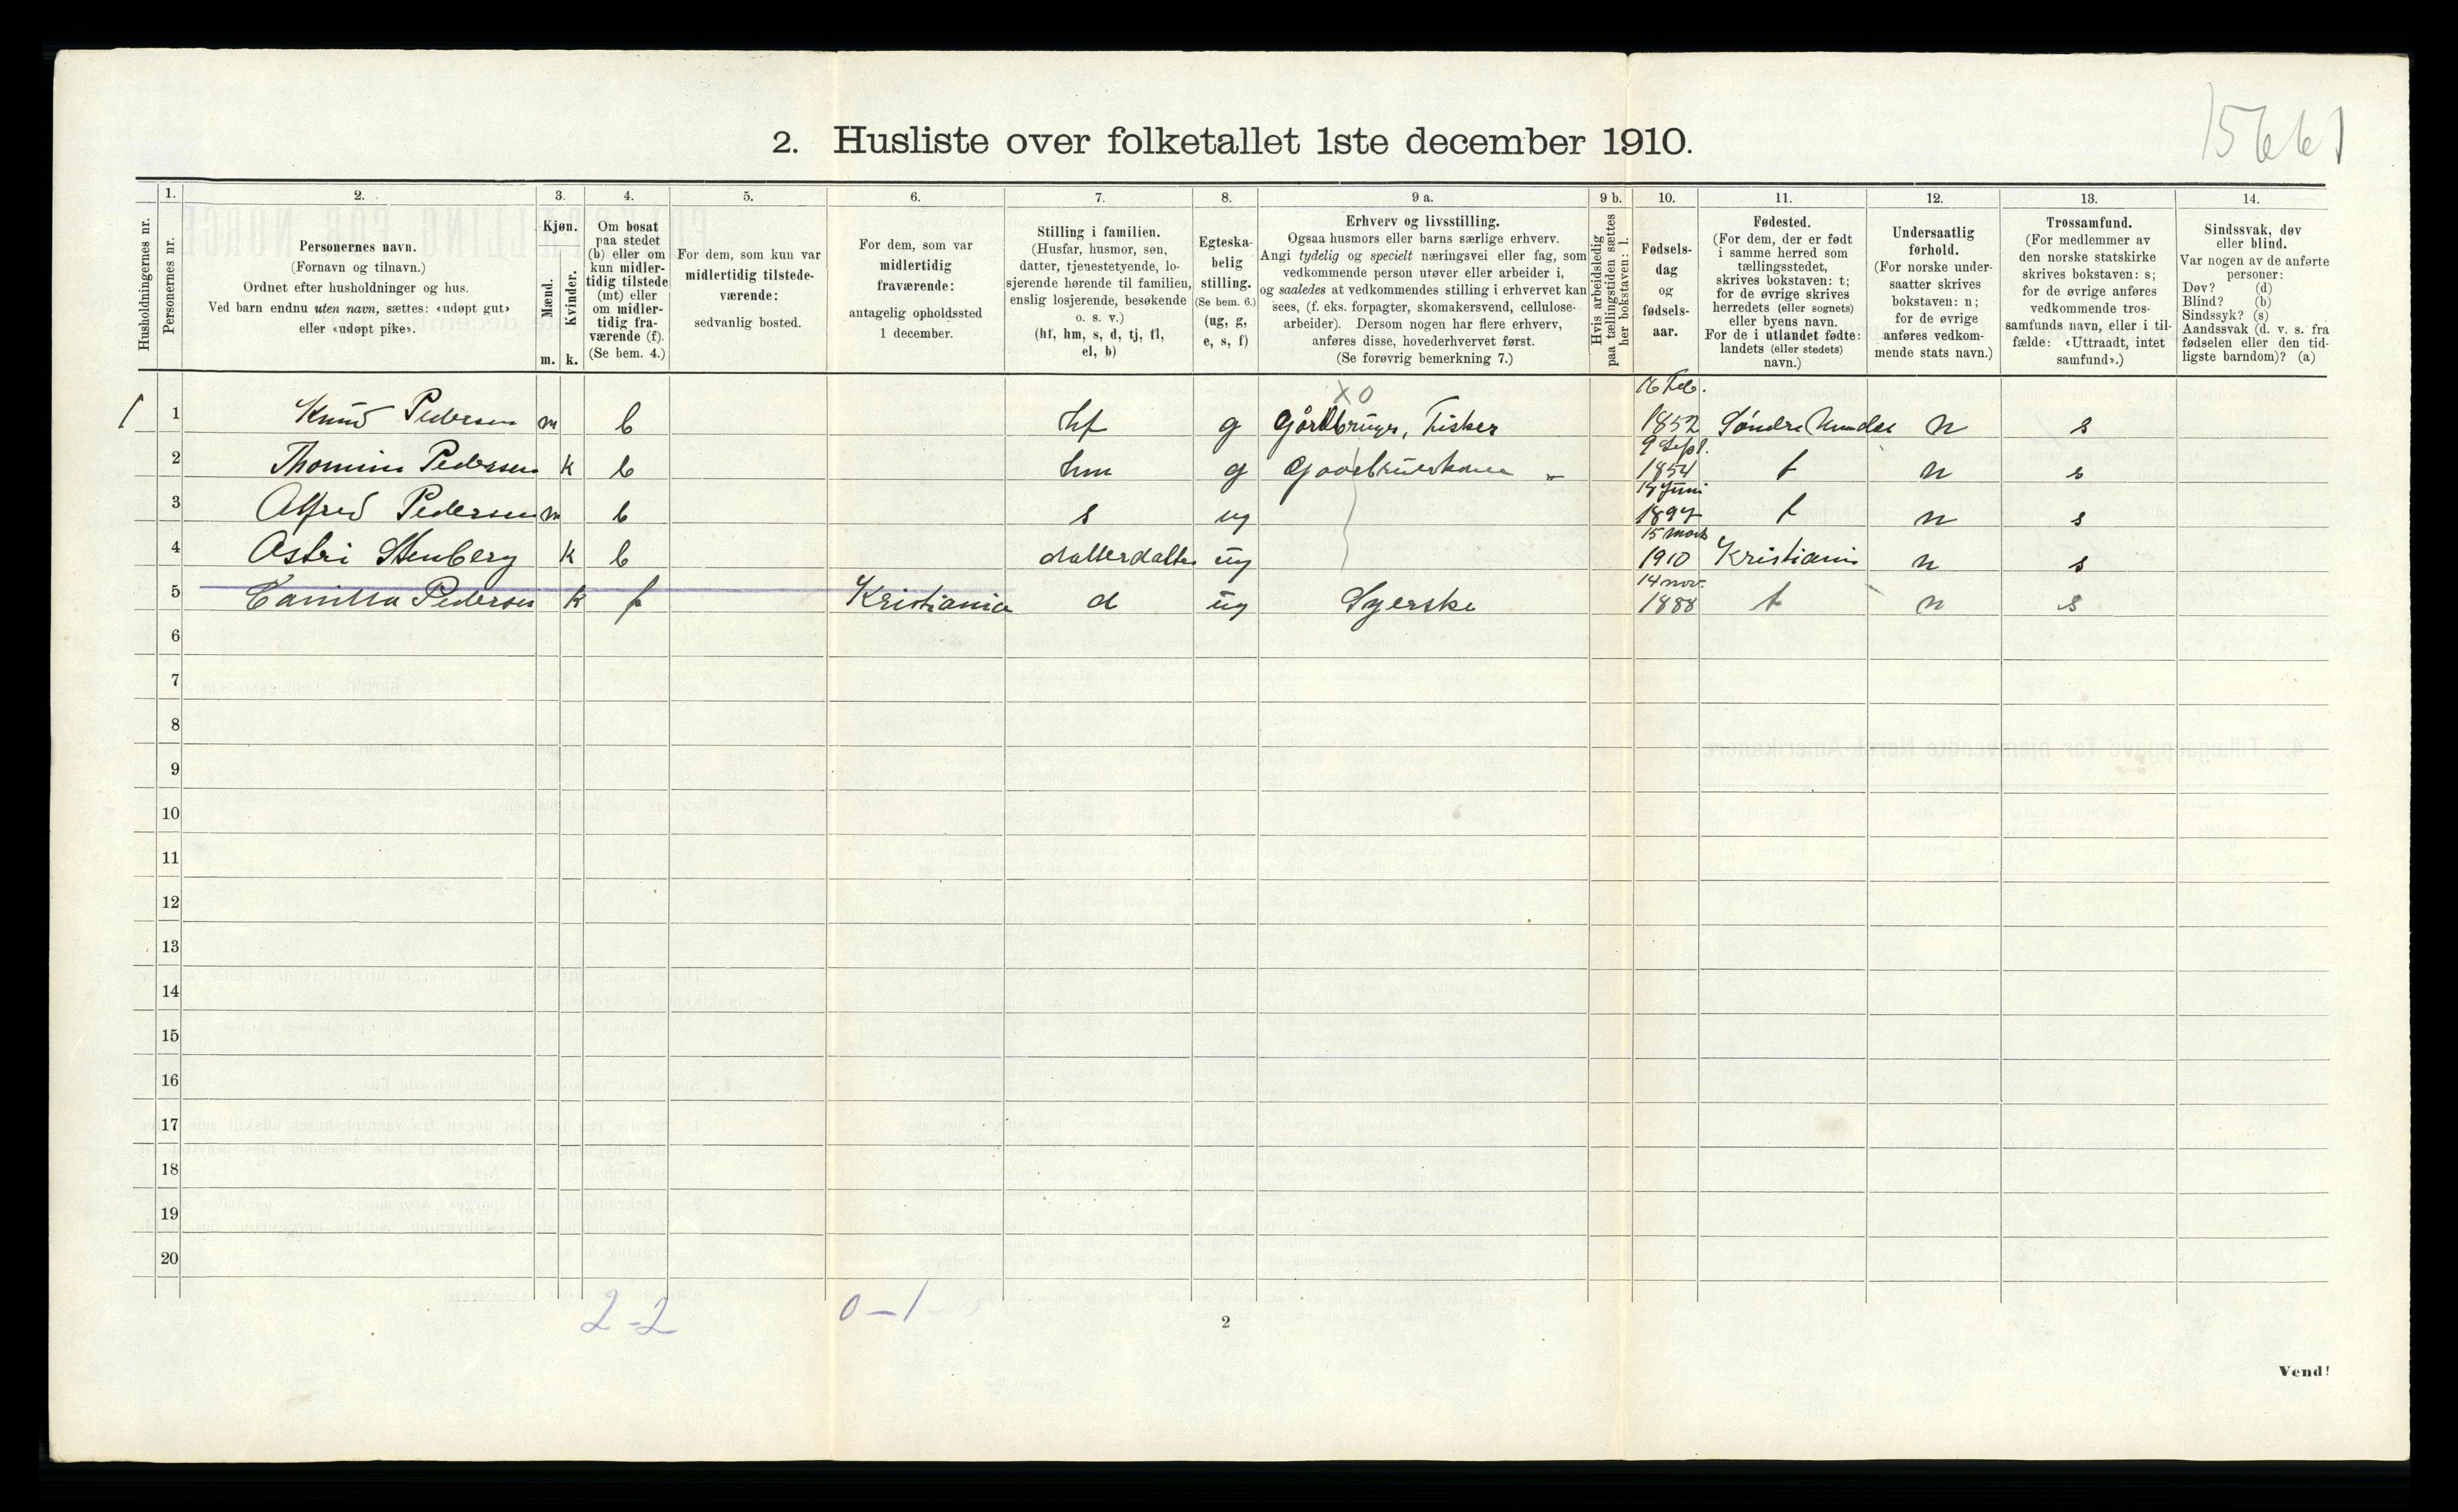 15661
2. Husliste over folketallet 1ste december 1910.
Husholdningernes nr.
1.
Personernes nr.
2.
Personernes navn.
(Fornavn og tilnavn.)
Ordnet efter husholdninger og hus.
Ved barn endnu uten navn, sættes: «udøpt gut»
eller «udøpt pike».
3.
Kjøn.
Mænd.
Kvinder.
m. k.
4.
Om bosat
paa stedet
(b) eller om
kun midler-
tidig tilstede
(mt) eller
om midler-
tidig fra-
værende (f).
(Se bem. 4.)
5.
For dem, som kun var
midlertidig tilstede-
værende:
sedvanlig bosted.
6.
For dem, som var
midlertidig
fraværende:
antagelig opholdssted
1 december.
7.
Stilling i familien.
(Husfar, husmor, søn,
datter, tjenestetyende, lo-
sjerende hørende til familien,
enslig losjerende, besøkende
o. s. v.)
(hf, hm, s, d, tj, fl,
el, b)
8.
Egteska-
belig
stilling.
(Se bem. 6.)
(ug, g,
e, s, f)
9 a.
Erhverv og livsstilling.
Ogsaa husmors eller barns særlige erhverv.
Angi tydelig og specielt næringsvei eller fag, som
vedkommende person utøver eller arbeider i,
og saaledes at vedkommendes stilling i erhvervet kan
sees, (f. eks. forpagter, skomakersvend, cellulose-
arbeider). Dersom nogen har flere erhverv,
anføres disse, hovederhvervet først.
(Se forøvrig bemerkning 7.)
9 b.
Hvis arbeidsledig
paa tællingstiden sættes
her bokstaven: l.
10.
Fødsels-
dag
og
fødsels-
aar.
11.
Fødested.
(For dem, der er født
i samme herred som
tællingsstedet,
skrives bokstaven: t;
for de øvrige skrives
herredets (eller sognets)
eller byens navn.
For de i utlandet fødte:
landets (eller stedets)
navn.)
12.
Undersaatlig
forhold.
(For norske under-
saatter skrives
bokstaven: n;
for de øvrige
anføres vedkom-
mende stats navn.)
13.
Trossamfund.
(For medlemmer av
den norske statskirke
skrives bokstaven: s;
for de øvrige anføres
vedkommende tros-
samfunds navn, eller i til-
fælde: «Uttraadt, intet
samfund».)
14.
Sindssvak, døv
eller blind.
Var nogen av de anførte
personer:
Døv? (d)
Blind? (b)
Sindssyk? (s)
Aandssvak (d. v. s. fra
fødselen eller den tid-
ligste barndom)? (a)
XO 16 Feb.
1 1 Knud Pedersen m b hf g Gårdbruger, Fisker 1852 Søndre n s
9 Sept.
2 Thomine Pedersen k b hm g 1854 t n s
Juni
3 Alfred Pedersen m b s ug 1897 t n s
15 mars
4 Astri Stenberg k b datterdatter ug 1910 Kristiania n s
14 nov.
5 Camilla Pedersen k f Kristiania d ug Syerske 1888 t n s
6
7
8
9
10
11
12
13
14
15
16
17
18
19
20
2-2 0-1
2
Vend!